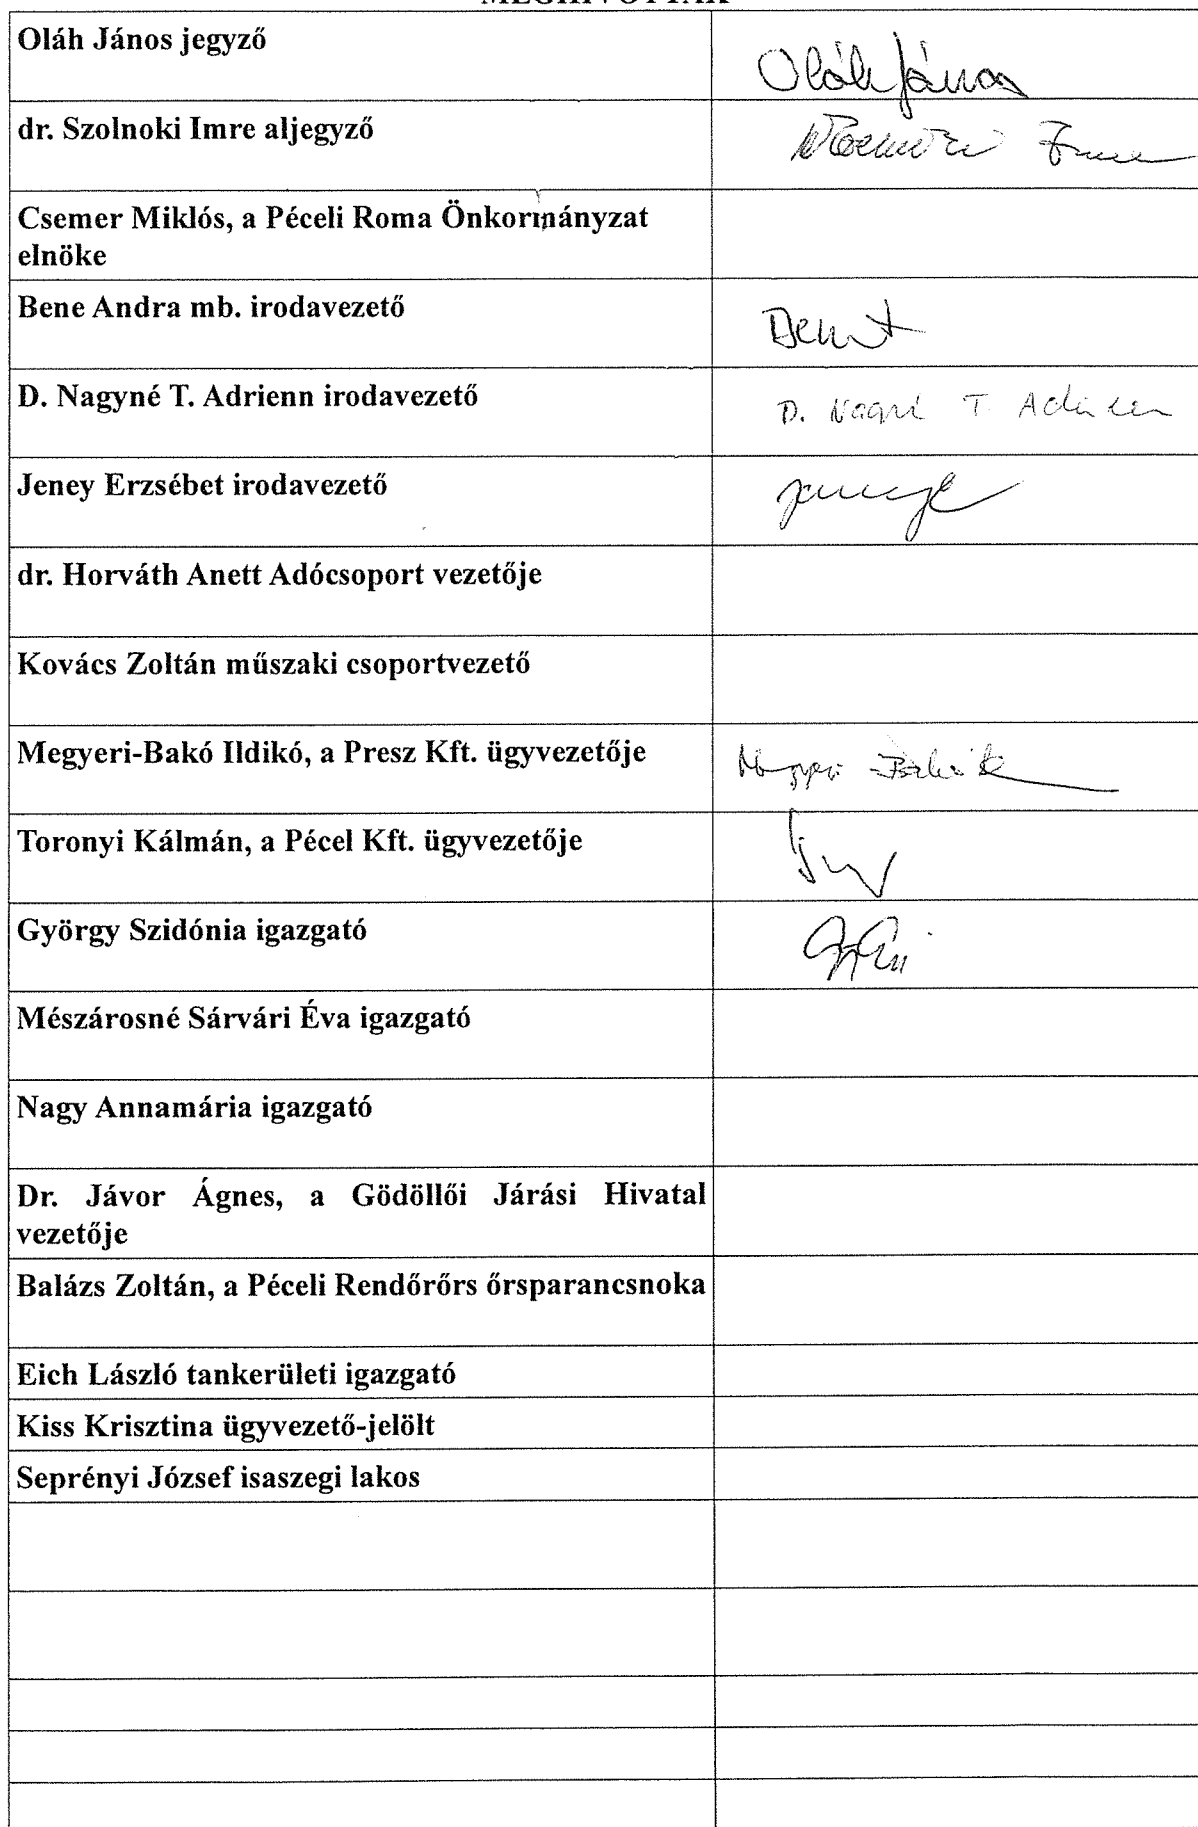 MEGHÍVOTTAK
Oláh János jegyző
Oláh János
dr. Szolnoki Imre aljegyző
Imre
Csemer Miklós, a Péceli Roma Önkormányzat
elnöke
Bene Andra mb. irodavezető
D. Nagyné T. Adrienn irodavezető
D. Nagyné T. Adrienn
Jeney Erzsébet irodavezető
dr. Horváth Anett Adócsoport vezetője
Kovács Zoltán műszaki csoportvezető
Megyeri-Bakó Ildikó, a Presz Kft. ügyvezetője
Toronyi Kálmán, a Pécel Kft. ügyvezetője
György Szidónia igazgató
Mészárosné Sárvári Éva igazgató
Nagy Annamária igazgató
Dr. Jávor Ágnes, a Gödöllői Járási Hivatal
vezetője
Balázs Zoltán, a Péceli Rendőrőrs őrsparancsnoka
Eich László tankerületi igazgató
Kiss Krisztina ügyvezető-jelölt
Seprényi József isaszegi lakos